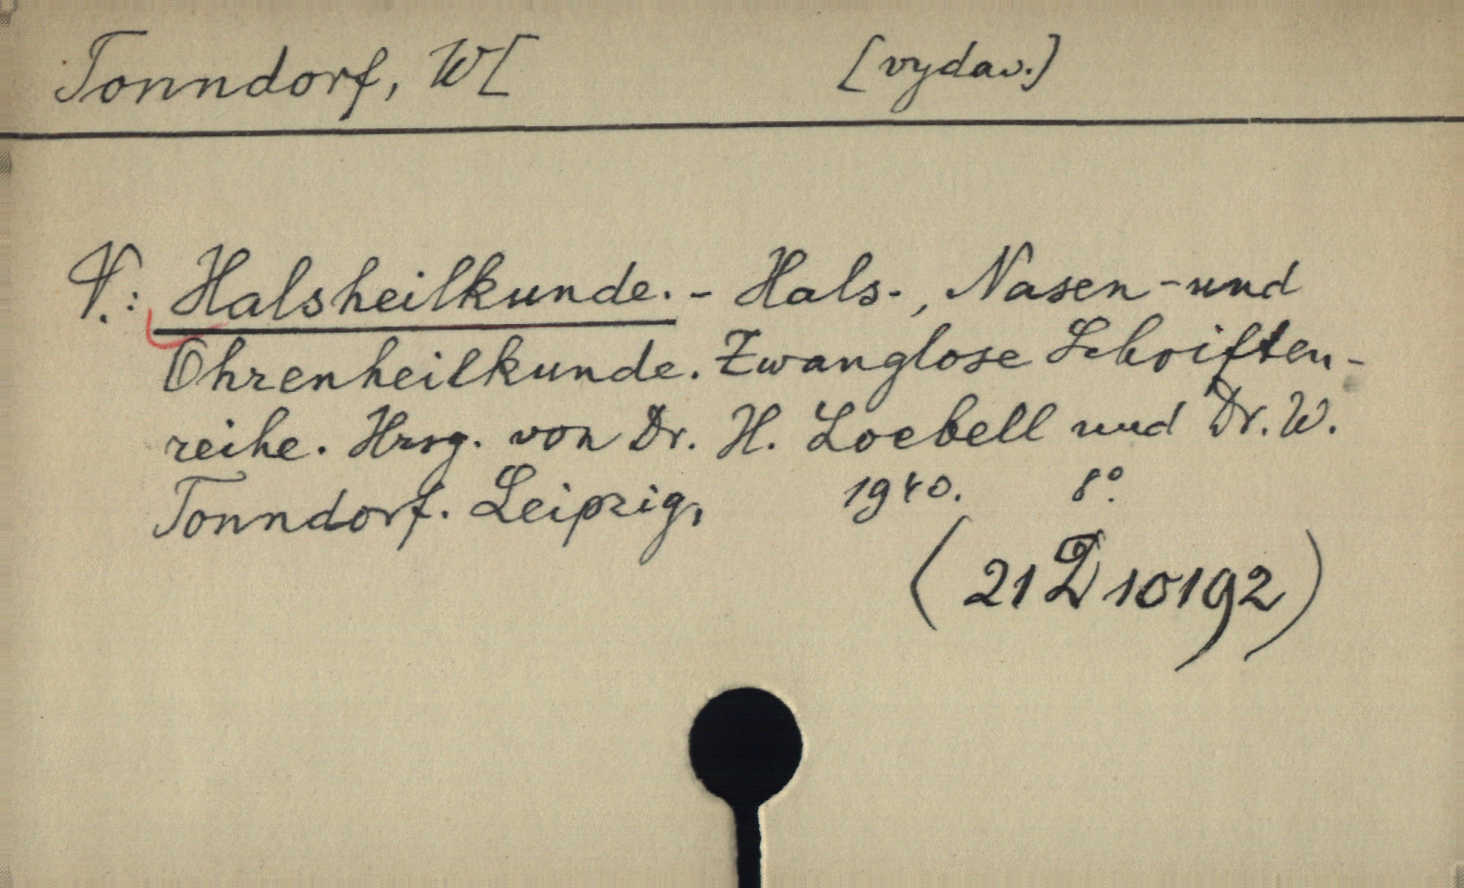 Tonndorf, W[ [vydav.]
V.: Halsheilkunde. - Hals-, Nasen- und
Ohrenheilkunde. Zwanglose Schriften-
reihe. Hrsg. von Dr. H. Loebell und Dr. W.
Tonndorf. Leipzig, 1940. 8°.
(21 D 10192)